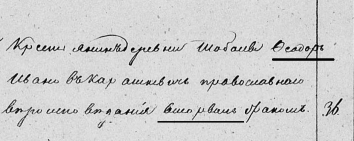 Крестьянинъ деревни Шабаева Ѳеодоръ
Ивановъ Карашкевичъ православнаго
вѣроисповѣданія вторымъ бракомъ. 36.